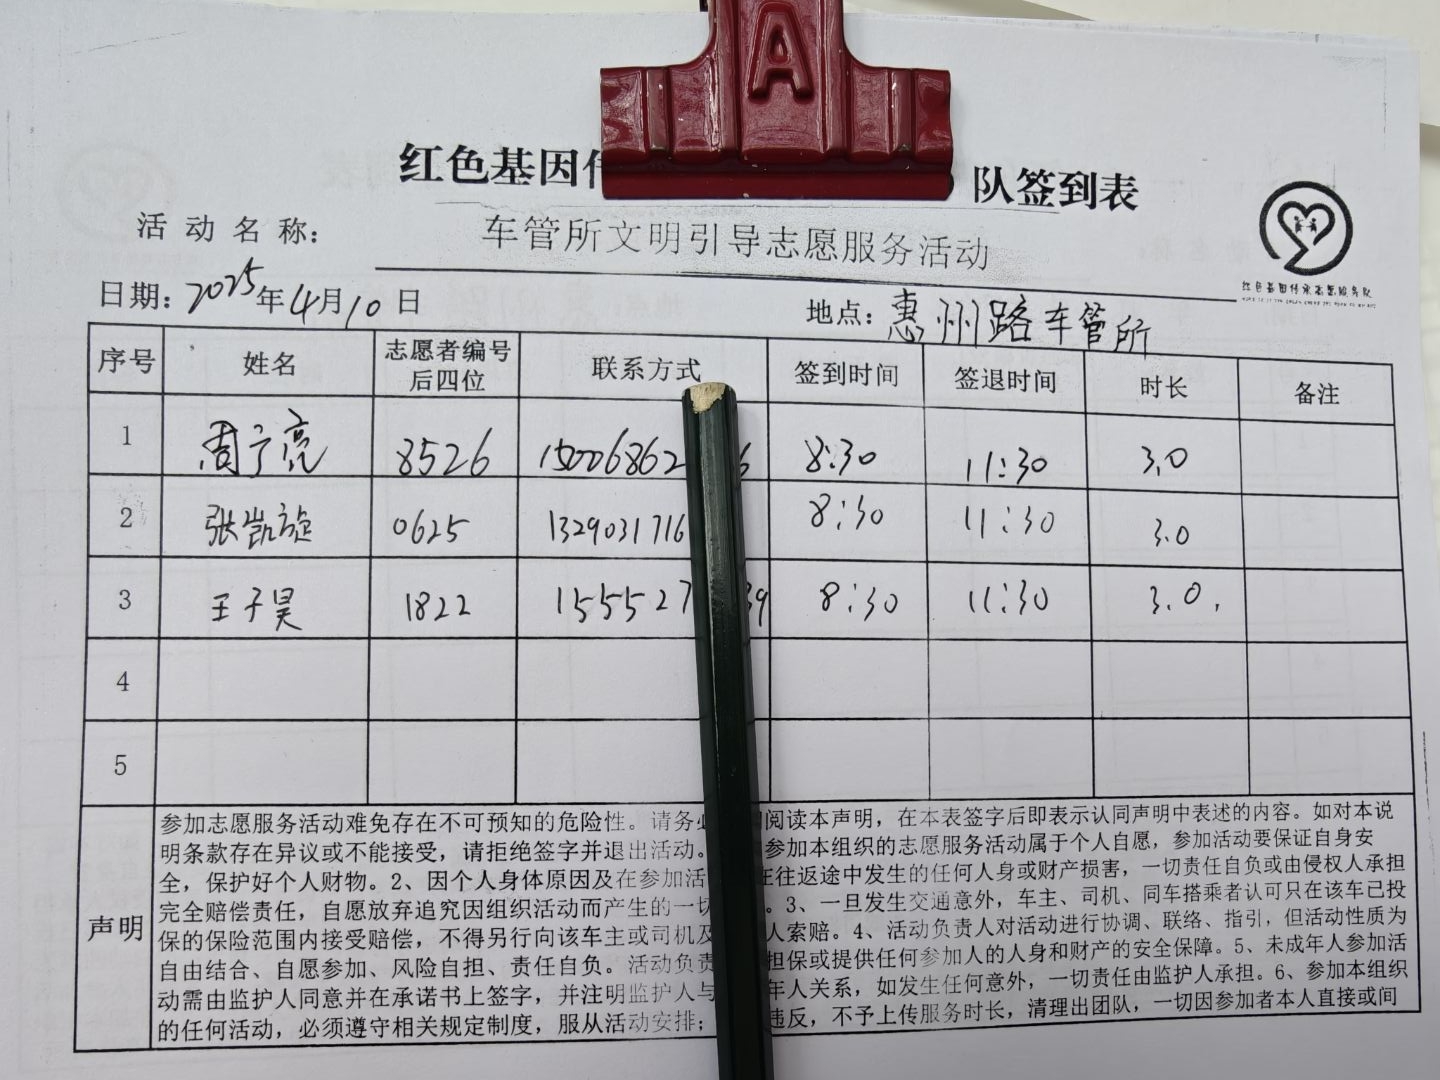 A
红色基因 队签到表
活动名称: 车管所文明引导志愿服务活动
红色基因传承志愿服务队
日期: 2025年4月10日 地点: 惠州路车管所
序号 姓名 志愿者编号后四位 联系方式 签到时间 签退时间 时长 备注
1 周宁亮 8526 15006862 6 8:30 11:30 3.0
2 张凯旋 0625 1329031716 8:30 11:30 3.0
3 王子昊 1822 155527 39 8:30 11:30 3.0.
4
5
声明
参加志愿服务活动难免存在不可预知的危险性。请务必 阅读本声明，在本表签字后即表示认同声明中表述的内容。如对本说
明条款存在异议或不能接受，请拒绝签字并退出活动。 参加本组织的志愿服务活动属于个人自愿，参加活动要保证自身安
全，保护好个人财物。2、因个人身体原因及在参加活 在往返途中发生的任何人身或财产损害，一切责任自负或由侵权人承担
完全赔偿责任，自愿放弃追究因组织活动而产生的一切 。3、一旦发生交通意外，车主、司机、同车搭乘者认可只在该车已投
保的保险范围内接受赔偿，不得另行向该车主或司机及 人索赔。4、活动负责人对活动进行协调、联络、指引，但活动性质为
自由结合、自愿参加、风险自担、责任自负。活动负责 担保或提供任何参加人的人身和财产的安全保障。5、未成年人参加活
动需由监护人同意并在承诺书上签字，并注明监护人与 年人关系，如发生任何意外，一切责任由监护人承担。6、参加本组织
的任何活动，必须遵守相关规定制度，服从活动安排； 违反，不予上传服务时长，清理出团队，一切因参加者本人直接或间